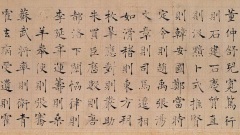 董仲舒兒寬篤行
則石建石慶質直
則汲黯卜式推賢
則韓安國鄭當時
定令則趙禹張湯
文章則司馬遷相
如滑稽則東方朔
枚皋應對則嚴助
朱買臣曆數則唐
都洛下閎協律則
李延年運籌則桑
弘羊奉使則張騫
蘇武將率則衛青
霍去病受遺則霍